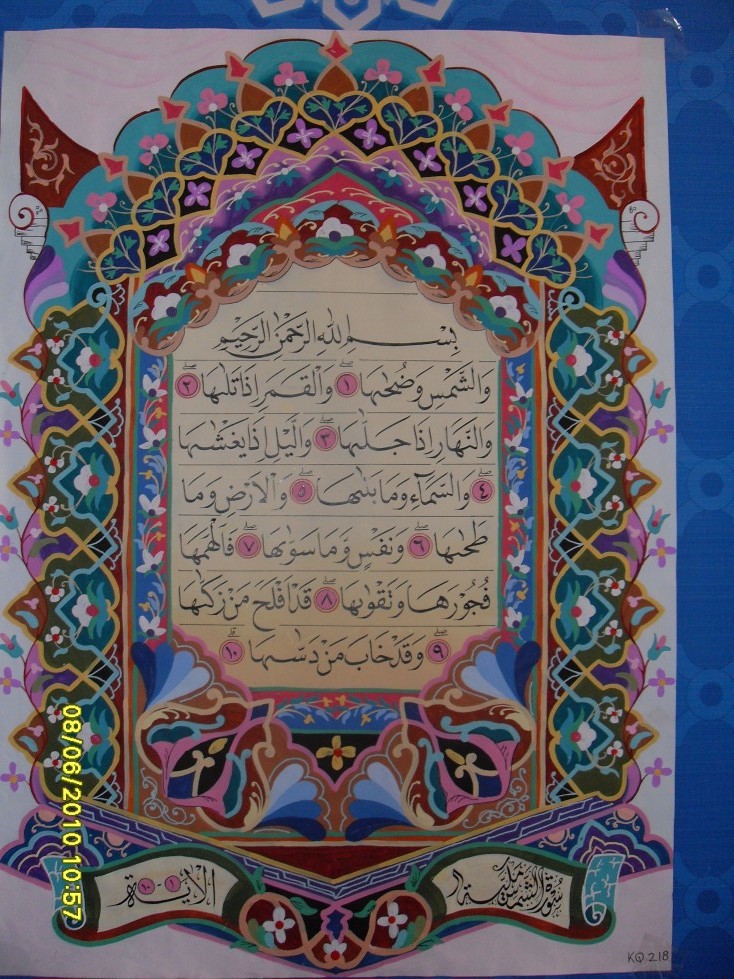 بِسْمِ اللهِ الرَّحْمٰنِ الرَّحِيْمِ
وَالشَّمْسِ وَضُحٰىهَا ۱ وَالْقَمَرِ اِذَا تَلٰىهَا ۲
وَالنَّهَارِ اِذَا جَلّٰىهَا ۳ وَالَّيْلِ اِذَا يَغْشٰىهَا
٤ وَالسَّمَاۤءِ وَمَا بَنٰىهَا ۵ وَالْاَرْضِ وَمَا
طَحٰىهَا ٦ وَنَفْسٍ وَّمَا سَوّٰىهَا ۷ فَاَلْهَمَهَا
فُجُوْرَهَا وَتَقْوٰىهَا ۸ قَدْ اَفْلَحَ مَنْ زَكّٰىهَا
۹ وَقَدْ خَابَ مَنْ دَسّٰىهَا ۱۰
سورة الشمس مكية
الاية ۱ - ۱۰
08/06/2010 10:57
KQ.218